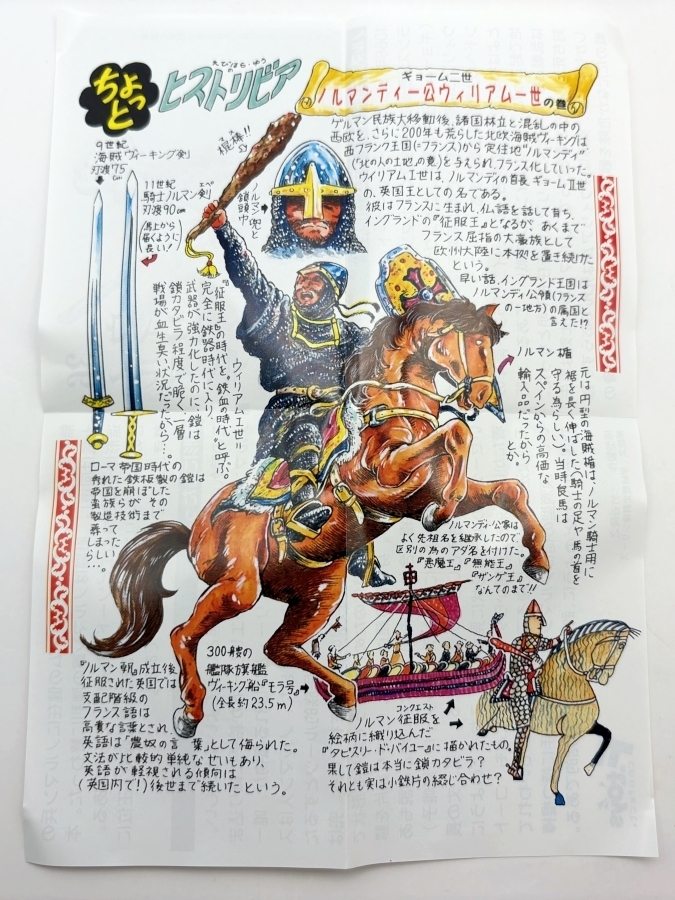 ちょっと
ヒストリビア
えびはら・ゆう
の
ギョーム二世
ノルマンディー公ウィリアム一世の巻
ゲルマン民族大移動後、諸国林立と混乱の中の
西欧を、さらに200年も荒らした北欧海賊ヴィーキングは
西フランク王国(=フランス)から定住地〝ノルマンディ〟
(『北の人の土地』の意)を与えられ、フランス化していった。
ウイリアムⅠ世は、ノルマンディの首長 ギョームⅡ世
の、英国王としての名である。
彼はフランスに生まれ、仏語を話して育ち、
イングランドの『征服王』となるが、あくまで
フランス屈指の大豪族として
欧州大陸に本拠を置き続けた
という。
早い話、イングランド王国は
ノルマンディ公領(フランス
の一地方)の属国と
言えた!?
9世紀
海賊ヴィーキング剣
刃渡75cm
11世紀
騎士ノルマン剣
エペ
刃渡90cm
(馬上から
届くように
長い!)
棍棒!!
こんぼう
ノルマン兜と
鎖頭巾
ウィリアム一世=
『征服王』の時代を〝鉄血の時代〟と呼ぶ。
完全に鉄器時代に入り、
武器が強力化したのに、鎧は
鎖カタビラ程度で脆く、一層
戦場が血生臭い状況だったから…。
ノルマン楯
元は円型の海賊楯は、ノルマン騎士用に
裾を長く伸ばした(騎士の足や馬の首を
守る為らしい)。当時良馬は
スペインからの高価な
輸入品だったから
とか。
ローマ帝国時代の
秀れた鉄板製の鎧は
帝国を崩ぼした
蛮族らが その
製造技術まで
葬って
しまった
らしい
…。
ノルマンディ公家は
よく先祖名を継承したので
区別の為のアダ名を付けた。
『悪魔王』『無能王』
『ザンゲ王』
なんてのまで!!
300艘の
艦隊旗艦
ヴィーキング船『モラ号』
(全長約23.5m)
『ノルマン朝』成立後
征服された英国では
支配階級の
フランス語は
高貴な言葉とされ、
英語は「農奴の言葉」として侮られた。
文法が比較的単純なせいもあり、
英語が軽視される傾向は
(英国内で!)後世まで続いたという。
コンクエスト
ノルマン征服を
絵柄に織り込んだ
『タピスリー・ド・バイユー』に描かれたもの。
果して鎧は本当に鎖カタビラ?
それとも実は小鉄片の綴じ合わせ?